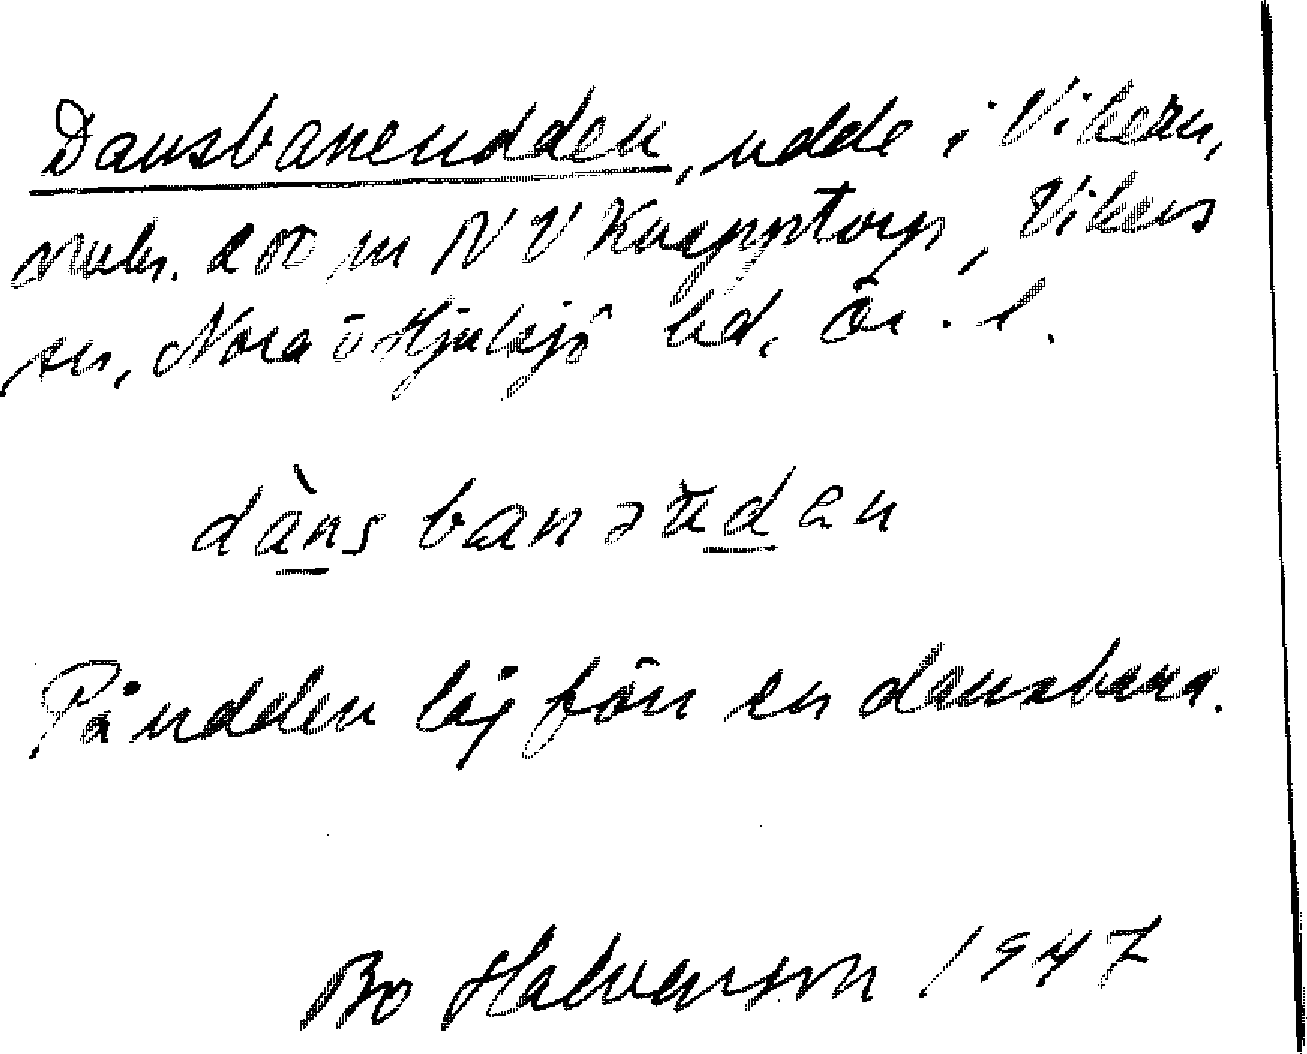 Dansbaneudden, udde i Vikern,
200 m NV Knapptorp, Vikers
sn, Nora o Hjulsjö hd, Ör. l.
dàns banəùden
På udden låg förr en dansbana.
Bo Halvarson 1947